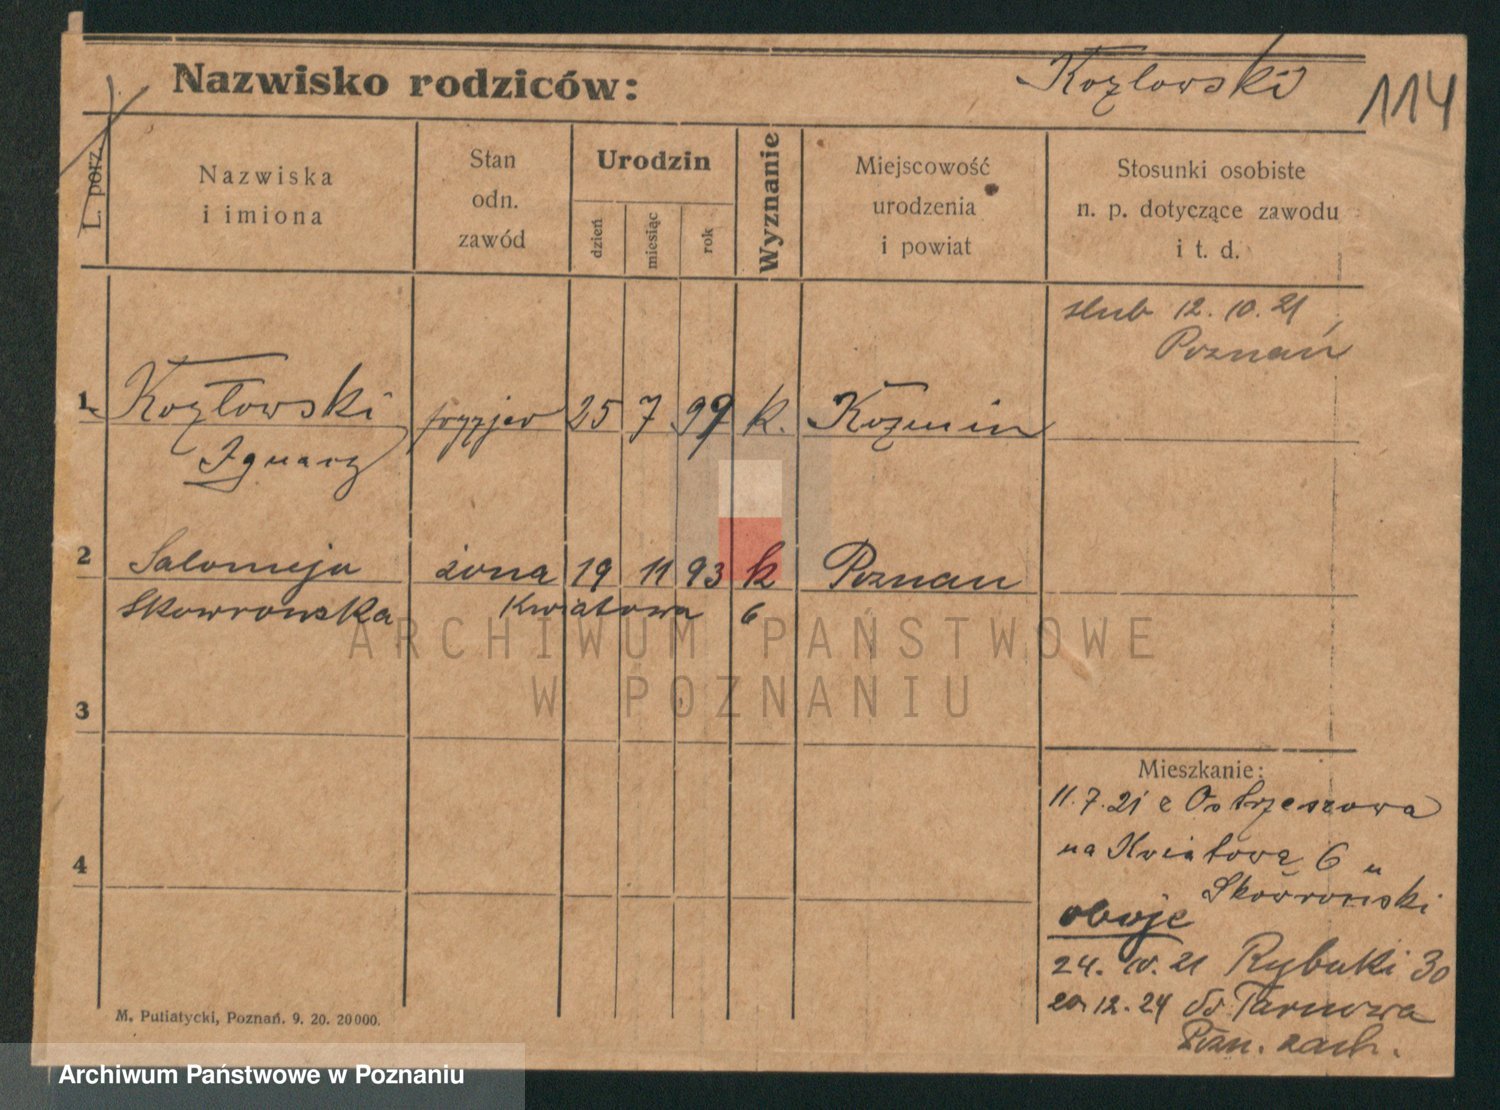 Nazwisko rodziców:
Kozłowski
114
L. porz.
Nazwiska
i imiona
Stan
odn.
zawód
Urodzin
dzień
miesiąc
rok
Wyznanie
Miejscowość
urodzenia
i powiat
Stosunki osobiste
n. p. dotyczące zawodu
i t. d.
slub 12. 10. 21
Poznań
1 Kozłowski fryzjer 25 7 99 k. Kozmin
Ignacz
2 Salomeja żona 19 11 93 k Poznan
Skowronska Kwiatowa 6
3
4
Mieszkanie:
11. 7. 21 z Ostrzeszowa
na Kwiatową 6 u
Skowroński
oboje
24. 10. 21 Rybaki 30
20. 12. 24 do Tarnowa
Pozn. zach.
M. Putiatycki, Poznań. 9. 20. 20000.
ARCHIWUM PAŃSTWOWE
W POZNANIU
Archiwum Państwowe w Poznaniu